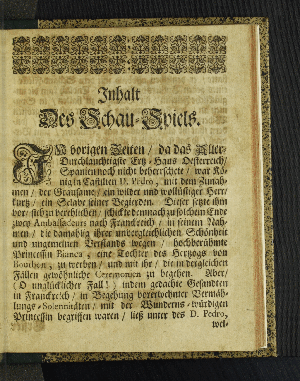 Inhalt
Des Schau-Spiels.
IN vorigen Zeiten / da das Aller-
Durchlauchtigste Ertz-Haus Oesterreich /
Spanien noch nicht beherrschete / war Kö-
nig in Castilien D. Pedro, mit dem Zunah-
men / der Grausame / ein wilder und wollüstiger Herr
kurtz / ein Sclave seiner Begierden. Dieser setzte ihm
vor / sich zu verehlichen / schickte demnach zu solchem Ende
zwey Ambassadeurs nach Franckreich / in seinem Nah-
men / die damahlig ihrer unvergleichlichen Schönheit
und ungemeinen Verstands wegen / hochberühmte
Princessin Bianca, eine Tochter des Hertzogs von
Bourbon, zu werben / und mit ihr / die in dergleichen
Fällen gewöhnliche Ceremonien zu begehen. Aber /
(O unglücklicher Fall!) indem gedachte Gesandten
in Franckreich / in Begehung vererwehnter Vermäh-
lungs-Solennitäten / mit der Wunderns-würdigen
Princessin begriffen waren / ließ unter des D. Pedro,
wel-